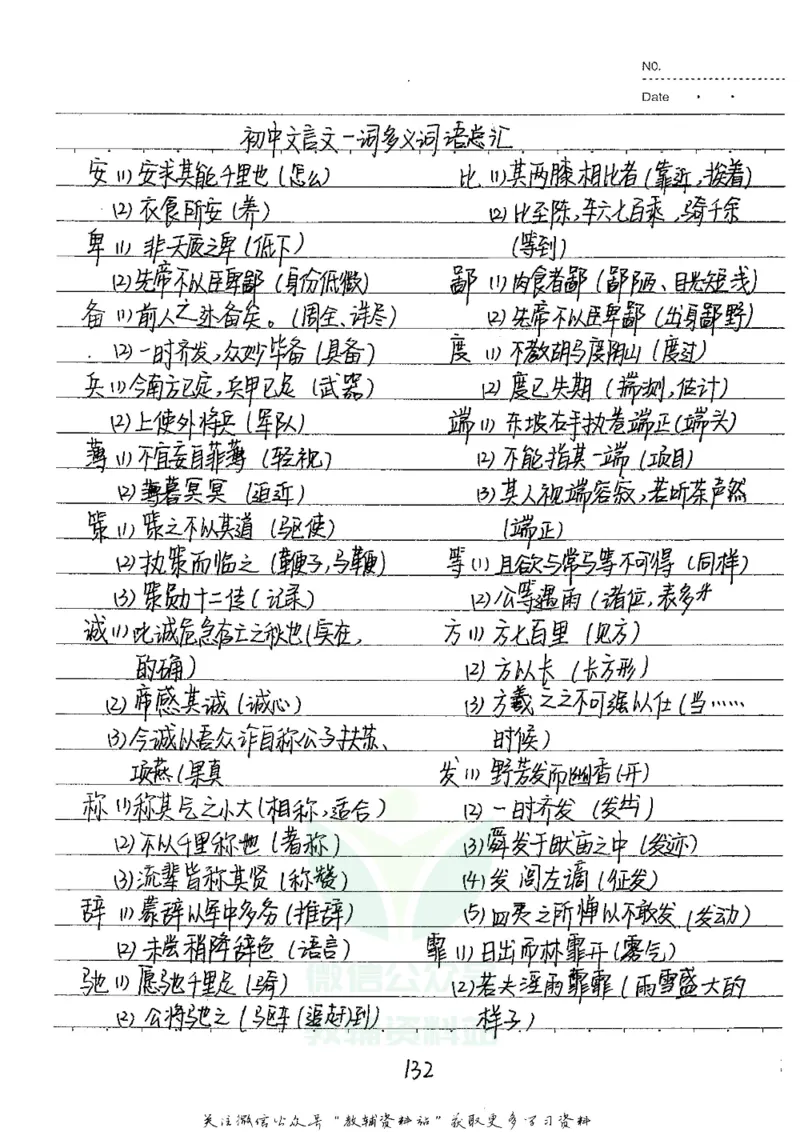 NO.
Date
初中文言文一词多义词语总汇
安 (1) 安求其能千里也 (怎么)
(2) 衣食所安 (养)
卑 (1) 非天质之卑 (低下)
(2) 先帝不以臣卑鄙 (身份低微)
备 (1) 前人之述备矣。(周全、详尽)
(2) 一时齐发,众妙毕备 (具备)
兵 (1) 今南方已定,兵甲已足 (武器)
(2) 上使外将兵 (军队)
薄 (1) 不宜妄自菲薄 (轻视)
(2) 薄暮冥冥 (迫近)
策 (1) 策之不以其道 (驱使)
(2) 执策而临之 (鞭子,马鞭)
(3) 策勋十二传 (记录)
诚 (1) 此诚危急存亡之秋也 (实在,
的确)
(2) 帝感其诚 (诚心)
(3) 今诚以吾众诈自称公子扶苏、
项燕 (果真
称 (1) 称其气之小大 (相称,适合)
(2) 不以千里称也 (著称)
(3) 流辈皆称其贤 (称赞)
辞 (1) 蒙辞以军中多务 (推辞)
(2) 未尝稍降辞色 (语言)
驰 (1) 愿驰千里足 (骑)
(2) 公将驰之 (驱车(追赶)到)
比 (1) 其两膝相比者 (靠近,挨着)
(2) 比至陈,车六七百乘,骑千余
(等到)
鄙 (1) 肉食者鄙 (鄙陋、目光短浅)
(2) 先帝不以臣卑鄙 (出身鄙野)
度 (1) 不教胡马度阴山 (度过)
(2) 度已失期 (揣测,估计)
端 (1) 东坡右手执卷端正 (端头)
(2) 不能指其一端 (项目)
(3) 其人视端容寂,若听茶声然
(端正)
等 (1) 且欲与常马等不可得 (同样)
(2) 公等遇雨 (诸位,表多
方 (1) 方七百里 (见方)
(2) 方以长 (长方形)
(3) 方羲之之不可强以仕 (当……
时候)
发 (1) 野芳发而幽香 (开)
(2) 一时齐发 (发出)
(3) 舜发于畎亩之中 (发迹)
(4) 发闾左谪 (征发)
(5) 四夷之所惮以不敢发 (发动)
霏 (1) 日出而林霏开 (雾气)
(2) 若夫淫雨霏霏 (雨雪盛大的
样子)
微信公众号
教辅资料站
132
关注微信公众号"教辅资料站"获取更多学习资料